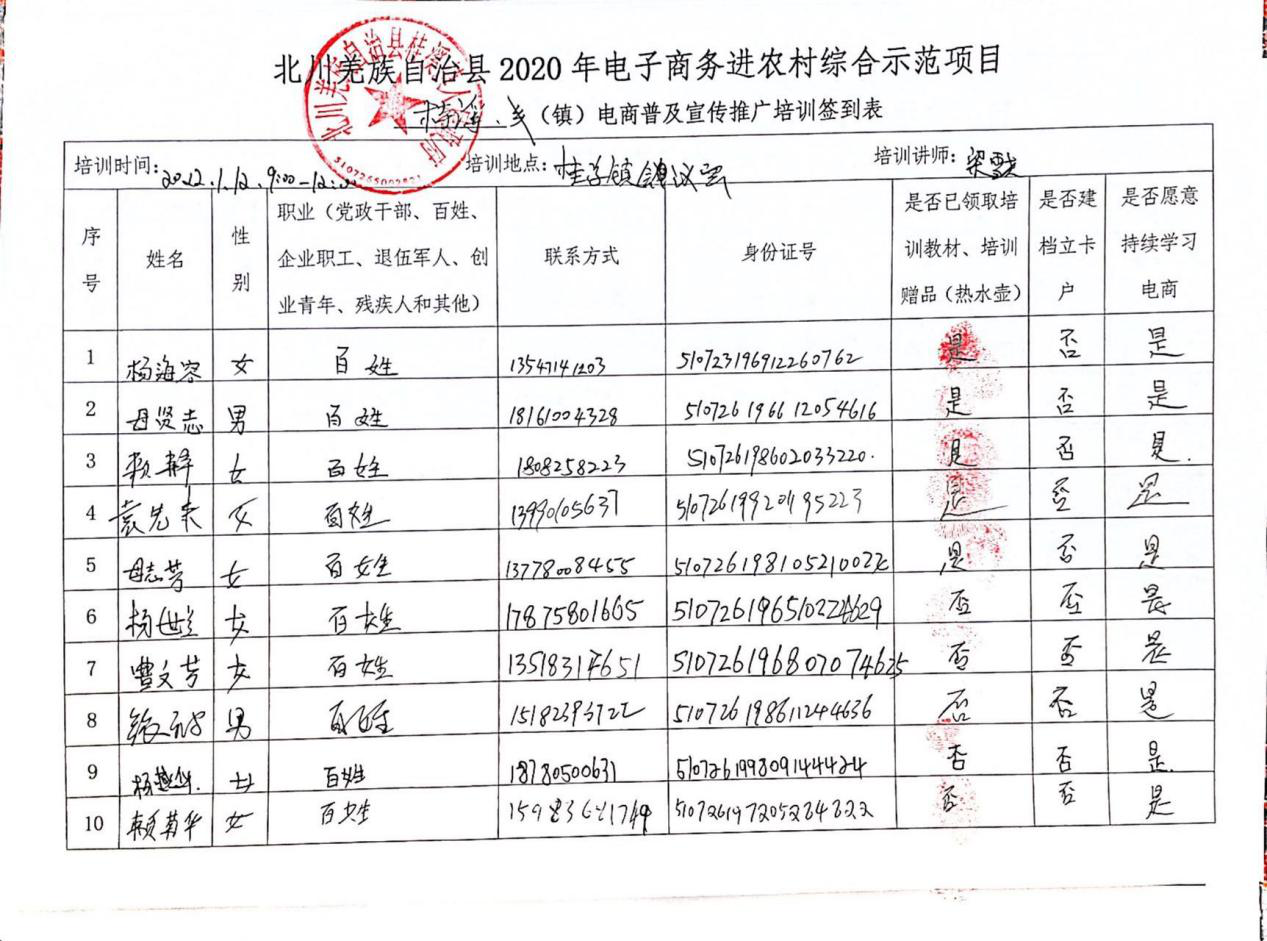 北川羌族自治县桂溪镇人民政府
5107265002821
北川羌族自治县2020年电子商务进农村综合示范项目
乡（镇）电商普及宣传推广培训签到表
培训时间：2022.1.12. 9:00-12:00 培训地点：桂溪镇会议室 培训讲师：
序号 姓名 性别 职业（党政干部、百姓、企业职工、退伍军人、创业青年、残疾人和其他） 联系方式 身份证号 是否已领取培训教材、培训赠品（热水壶） 是否建档立卡户 是否愿意持续学习电商
1 杨海容 女 百姓 13547141203 510723196912260762 是 否 是
2 母贤志 男 百姓 18161004328 510726196612054616 是 否 是
3 赖 女 百姓 1808258223 510726198602033220. 是 否 是.
4 袁先 女 百姓 13990105637 是 否 是
5 母志芳 女 百姓 13778008455 是 否 是
6 杨 女 百姓 17875801665 否 否 是
7 曹文芳 女 百姓 510726196807074625 否 否 是
8 男 百姓 510726198611244636 否 否 是
9 杨 女 百姓 18780500631 510726199809144424 否 否 是.
10 赖菊华 女 百姓 510726197205284822 否 否 是